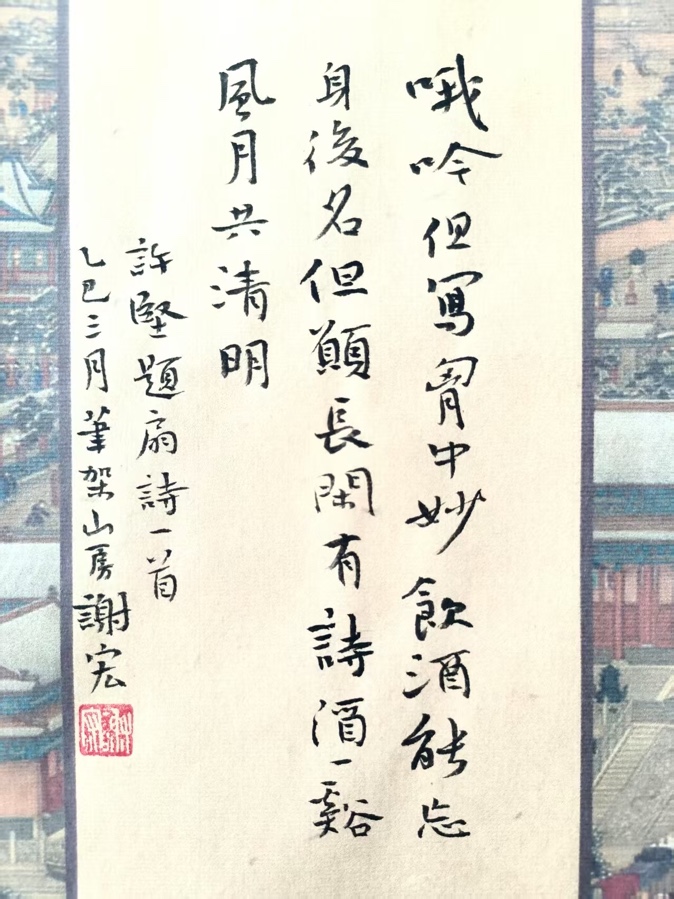 哦吟但寫胷中妙飲酒能忘
身後名但願長閑有詩酒一谿
風月共清明
許堅題扇詩一首
乙巳三月筆架山房謝宏